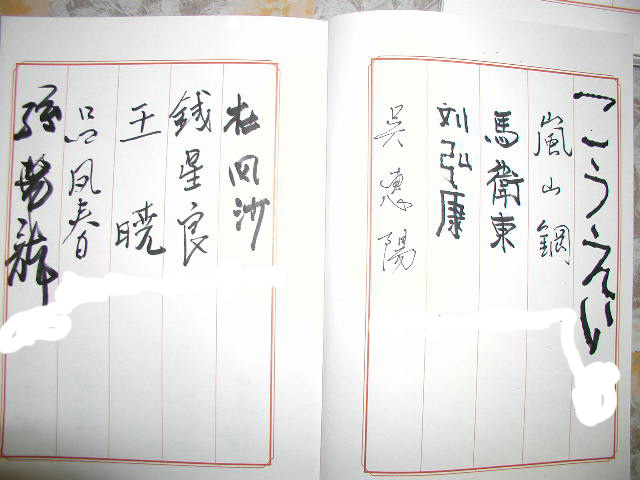 こうえい
嵐山鋼
馬衛東
刘弘康
吴恵陽
杜风沙
銭星良
王暁
吕凤春